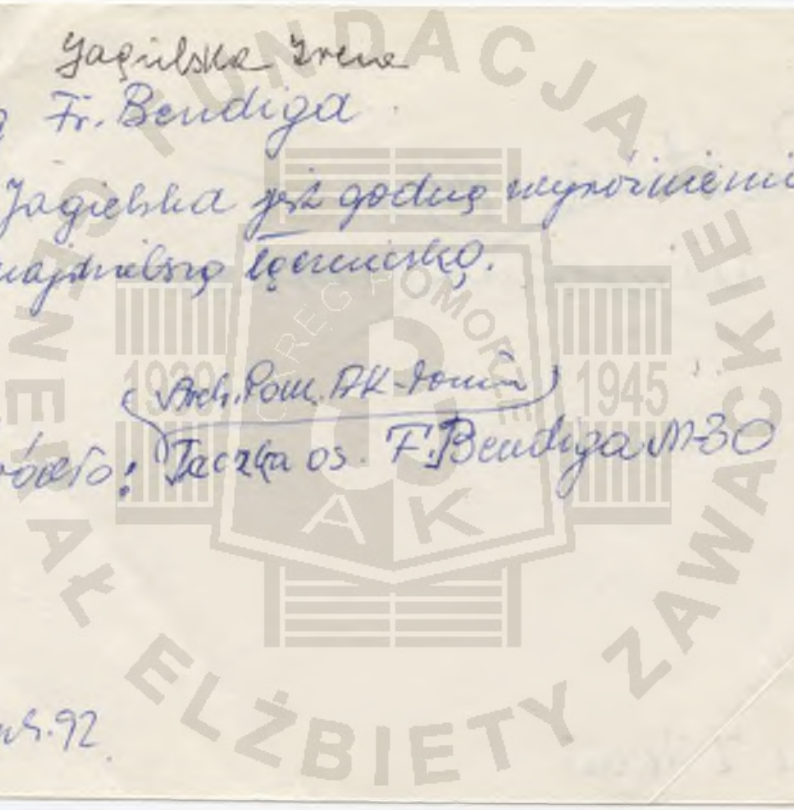 Jagielska Irena
ą Fr. Bendiga
Jagielska jest godną wyróżnienia
najdzielniejszą łączniczką.
(Arch. Pom. AK-Toruń)
ródło: Teczka os. F. Bendiga M-30
92
FUNDACJA GENERAŁ ELŻBIETY ZAWACKIEJ
OKRĘG POMORZE
1939 1945
AK